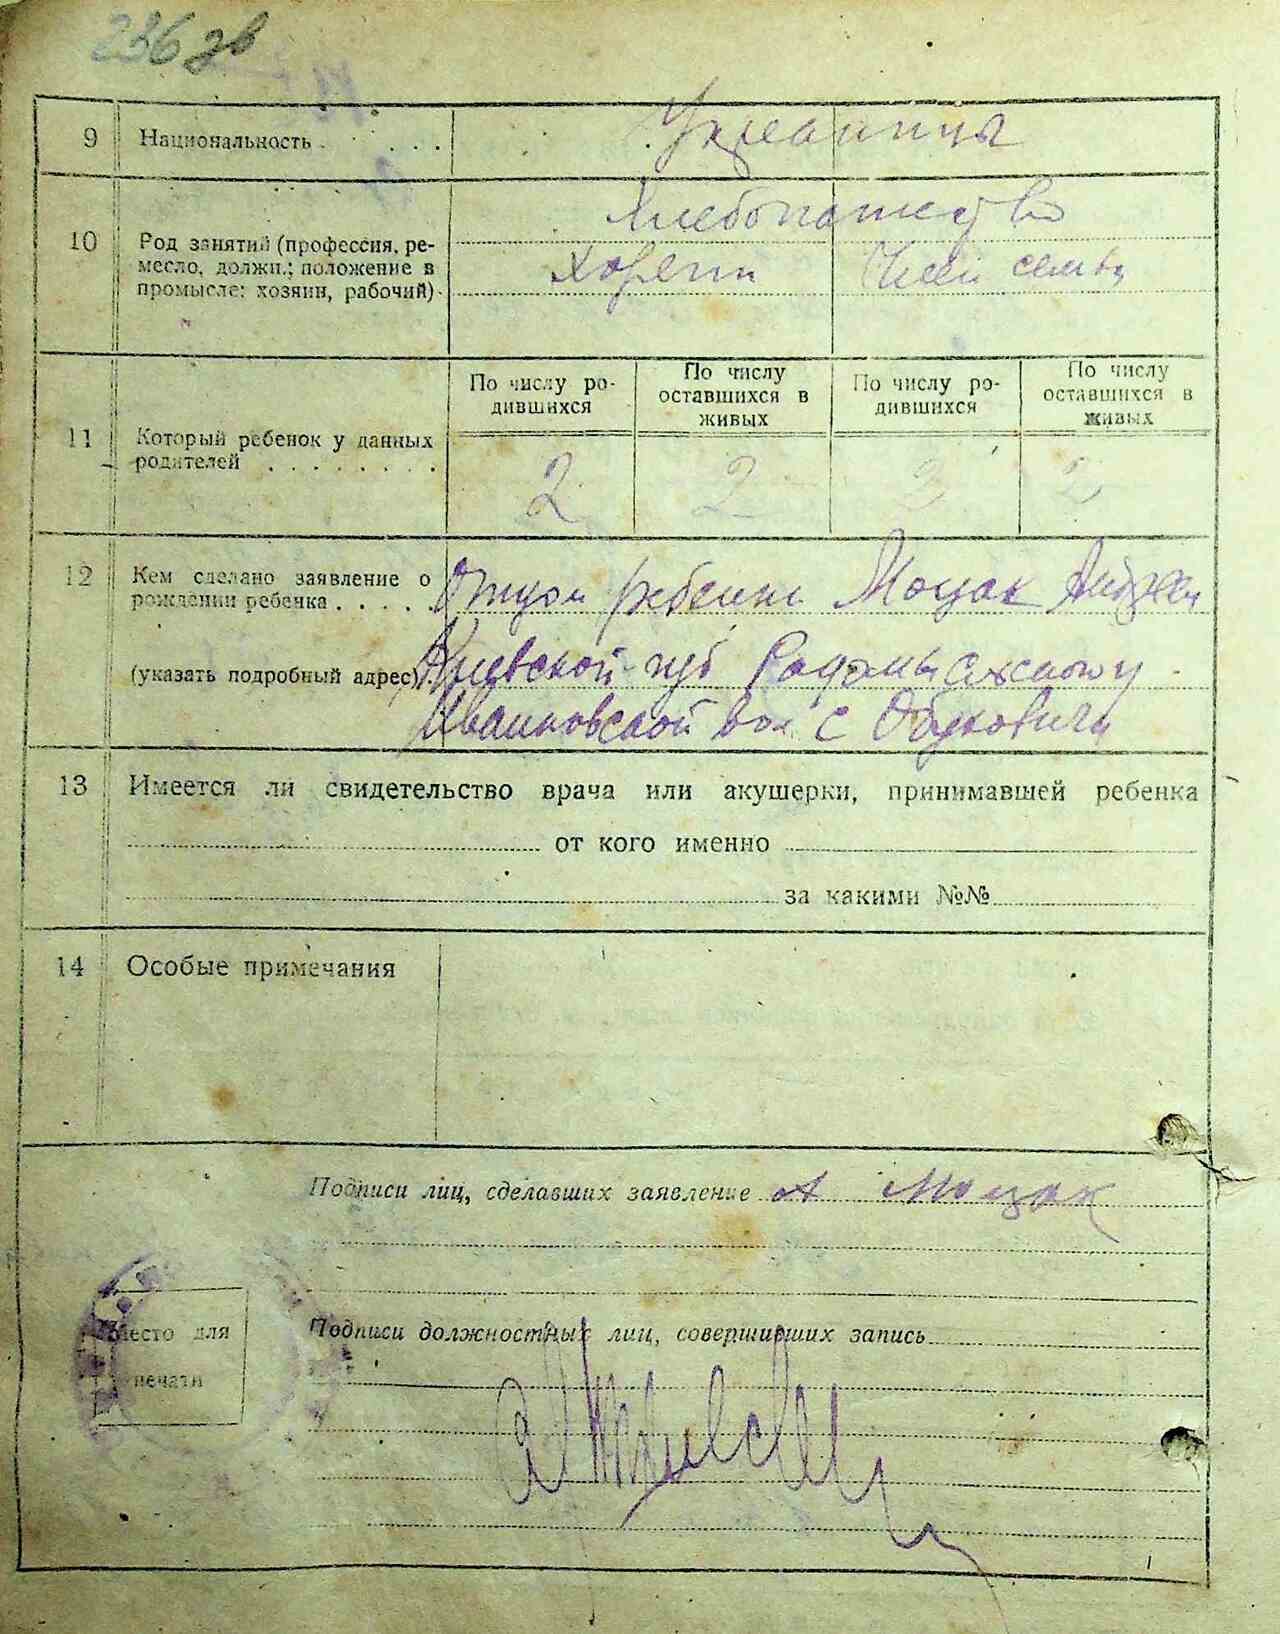 236 зв
9 Национальность . . . . . Украинцы
10 Род занятий (профессия, ре-
месло, должн.; положение в
промысле: хозяин, рабочий) .
Хлебопашество
Член семьи
По числу ро-
дившихся
По числу
оставшихся в
живых
По числу ро-
дившихся
По числу
оставшихся в
живых
11 Который ребенок у данных
родителей . . . . . . . .
2 2 2 2
12 Кем сделано заявление о
рождении ребенка . . . . .
Отцом ребенка Моцак Андреем
(указать подробный адрес)
Киевской губ Радомысльского у
Иванковской вол с Обуховичи
13 Имеется ли свидетельство врача или акушерки, принимавшей ребенка
от кого именно
за какими №№
14 Особые примечания
Подписи лиц, сделавших заявление А Моцак
Подписи должностных лиц, совершивших запись
Место для
печати